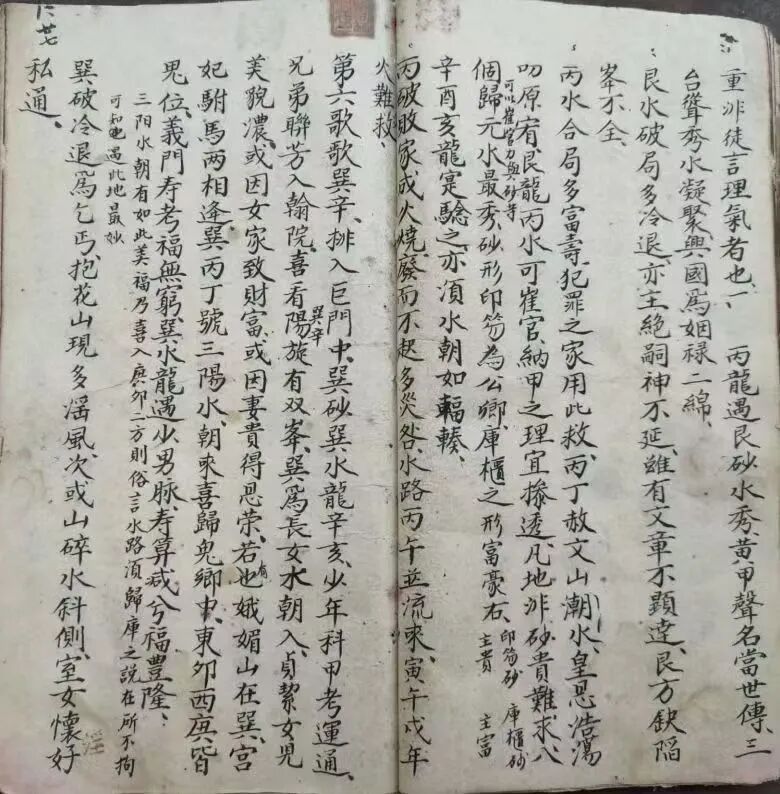 重非徒言理氣者也、一、丙龍遇艮砂水秀、黃甲聲名當世傳、三
台聳秀水凝聚興國爲姻祿二綿、
艮水破局多冷退、亦主絶嗣神不延、雖有文章不顯達、艮方缺陷
峯不全、
丙水合局多富壽、犯罪之家用此救、丙丁赦文山潮水、皇恩浩蕩
叨原宥、艮龍丙水可崔官、納甲之理宜摻透、凡地非砂貴難求、八
可以崔官力與砂等
個歸元水最秀、砂形印笏為公卿、庫櫃之形富豪右、
印笏砂主貴 庫櫃砂主富
辛酉亥龍寔驗之、亦湏水朝如輻輳、
丙破敗家成火燒、廢而不起多災咎、水路丙午並流來、寅午戌年
火難救、
第六歌歌巽辛、排入巨門中、巽砂巽水龍辛亥、少年科甲考運通、
兄弟聯芳入翰院、喜看陽旋有双峯、巽爲長女水朝入、貞絜女児
巽辛
美貌濃、或因女家致財富、或因妻貴得恩荣、若也娥媚山在巽、宫
有
妃駙馬两相逢、巽丙丁號三陽水、朝來喜歸鬼鄉中、東卯西庚皆
鬼位、義門寿考福無窮、巽水龍遇少男脉、寿算減兮福豊隆、
三阳水朝有如此美福乃喜入庚卯二方則俗言水路湏歸庫之説在所不拘
可知也遇此地最妙
巽破冷退爲乞丐、抱花山現多滛風、次或山碎水斜側、室女懷好
淫
私通、